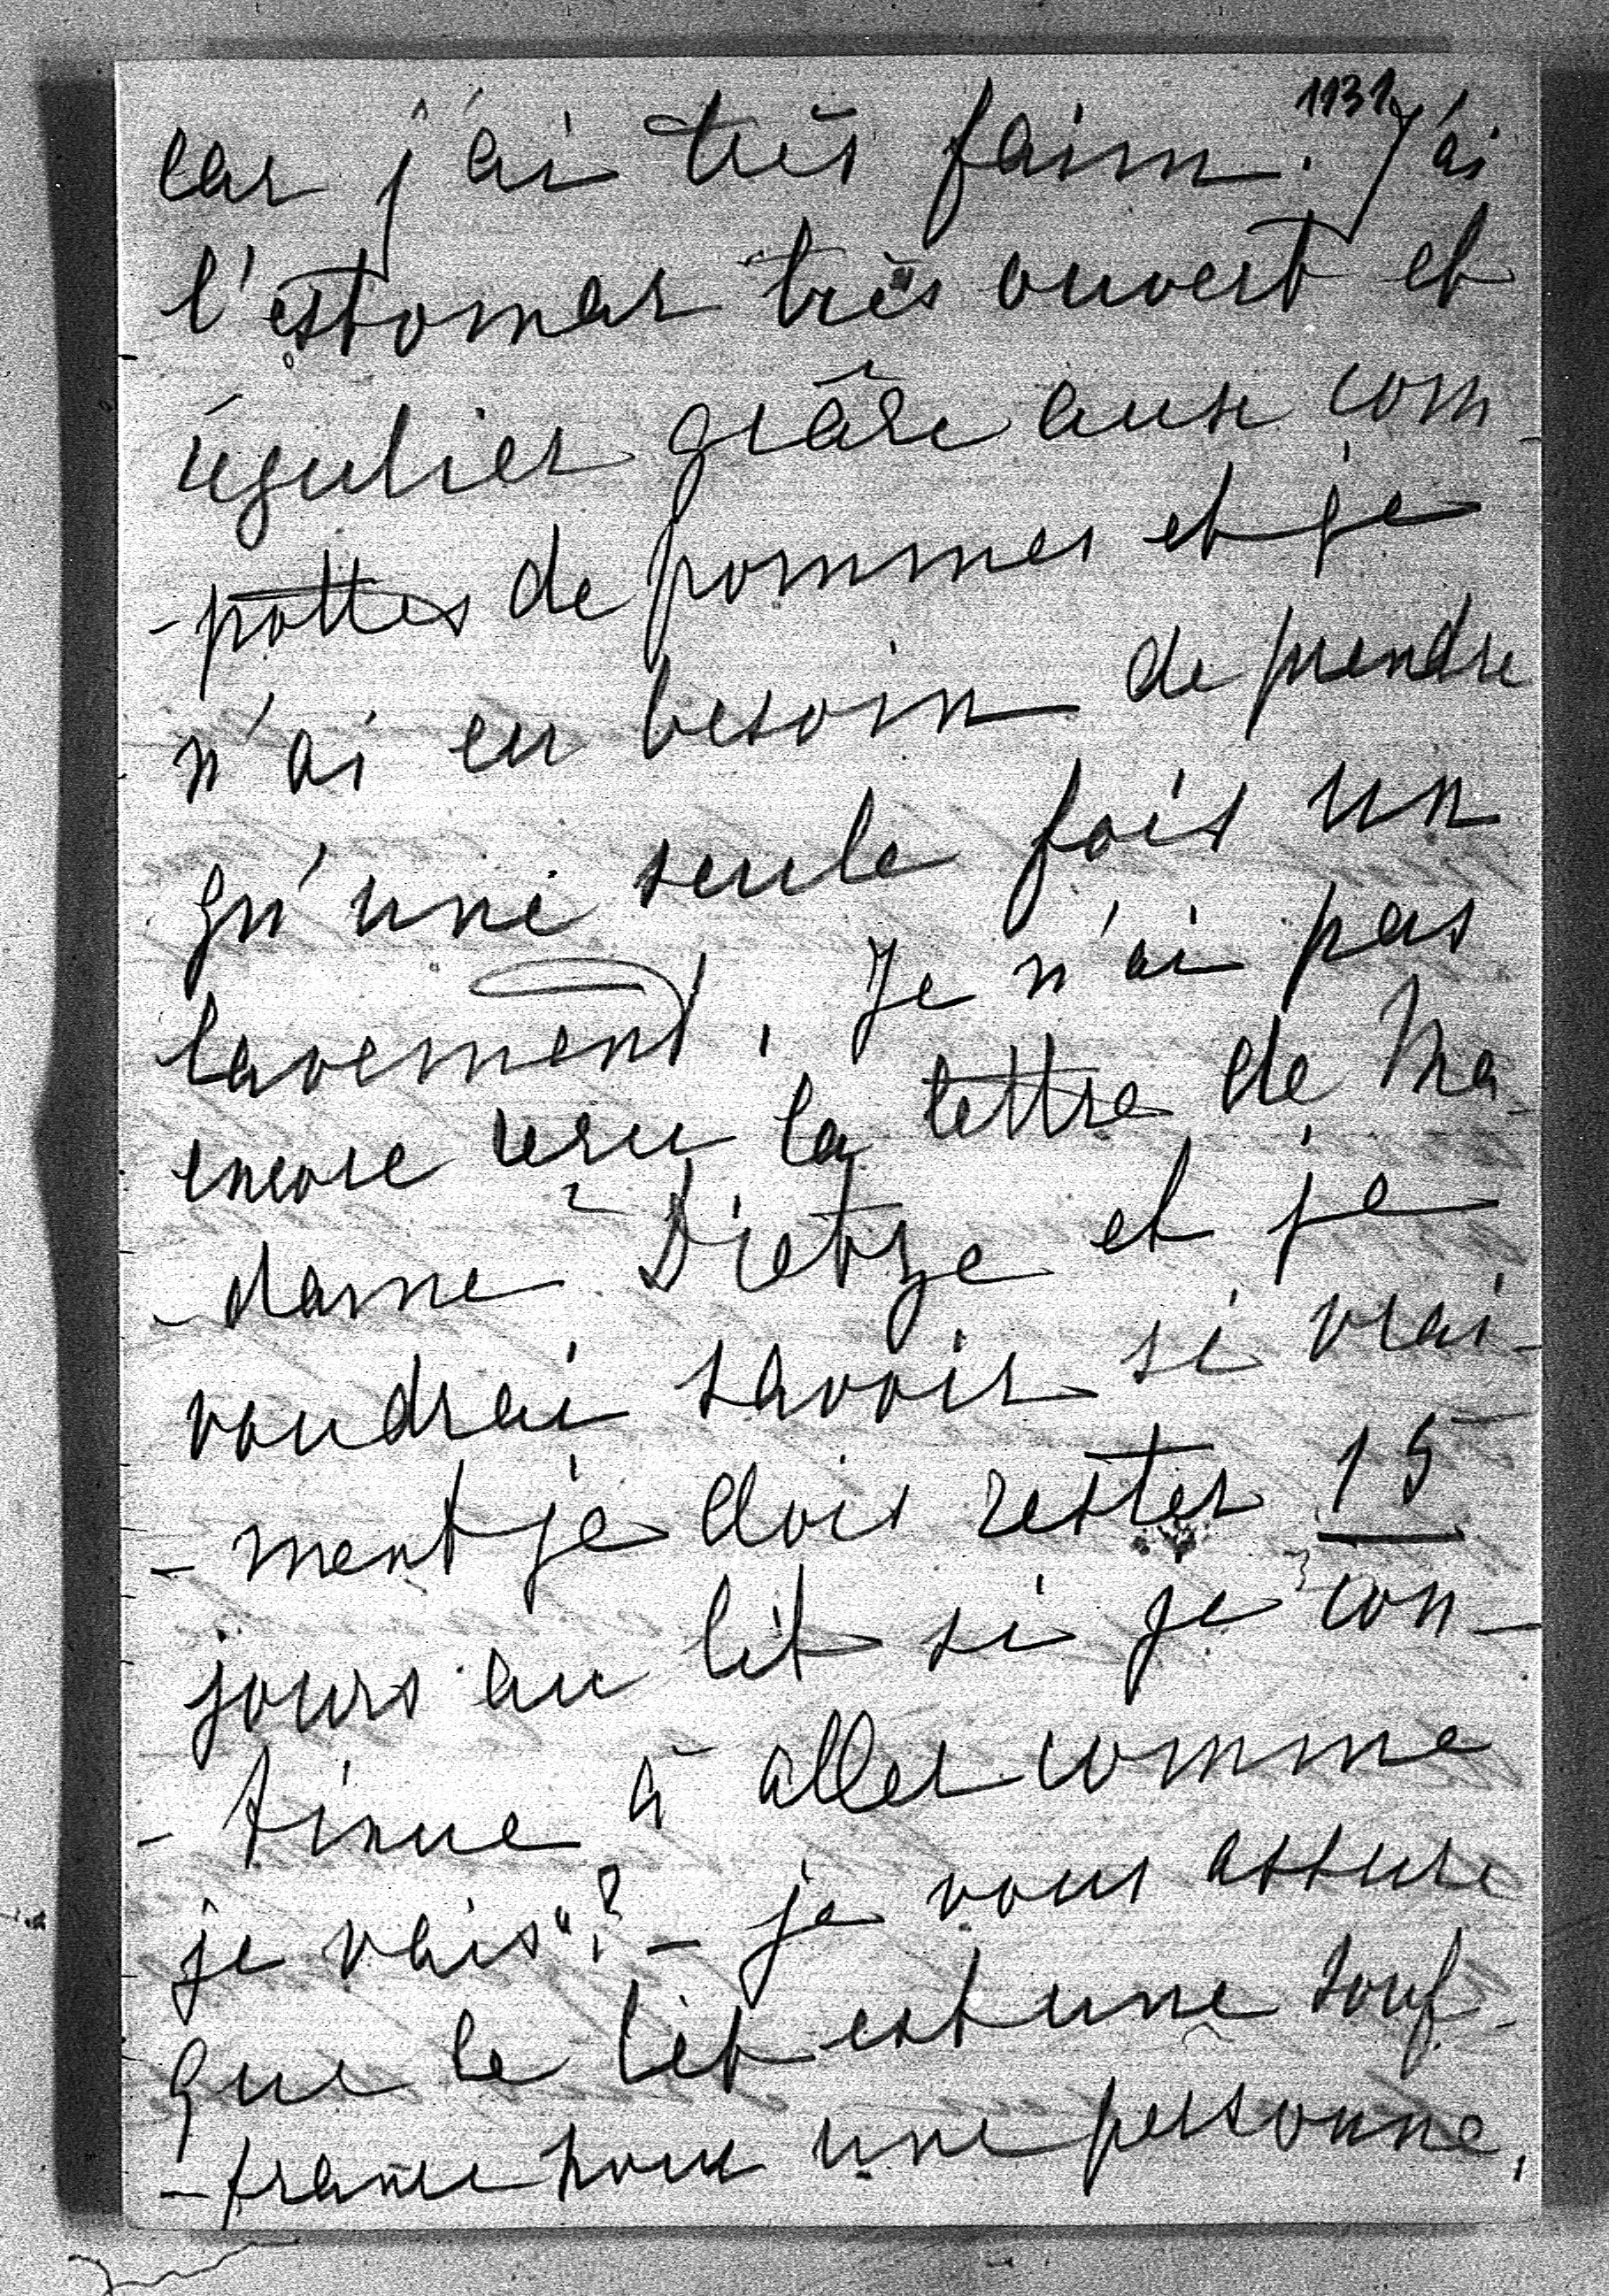 1131
car j'ai très faim. J'ai
l'estomac très ouvert et
régulier grâce aux com-
-pottes de pommes et je
n'ai eu besoin de prendre
qu'une seule fois un
lavement. Je n'ai pas
encore reçu la lettre de Ma-
-dame Dietze et je
voudrai savoir si vrai-
-ment je dois rester 15
jours au lit si je con-
-tinue à aller comme
je vais"? - je vous assure
que le lit est une souf-
-france pour une personne,